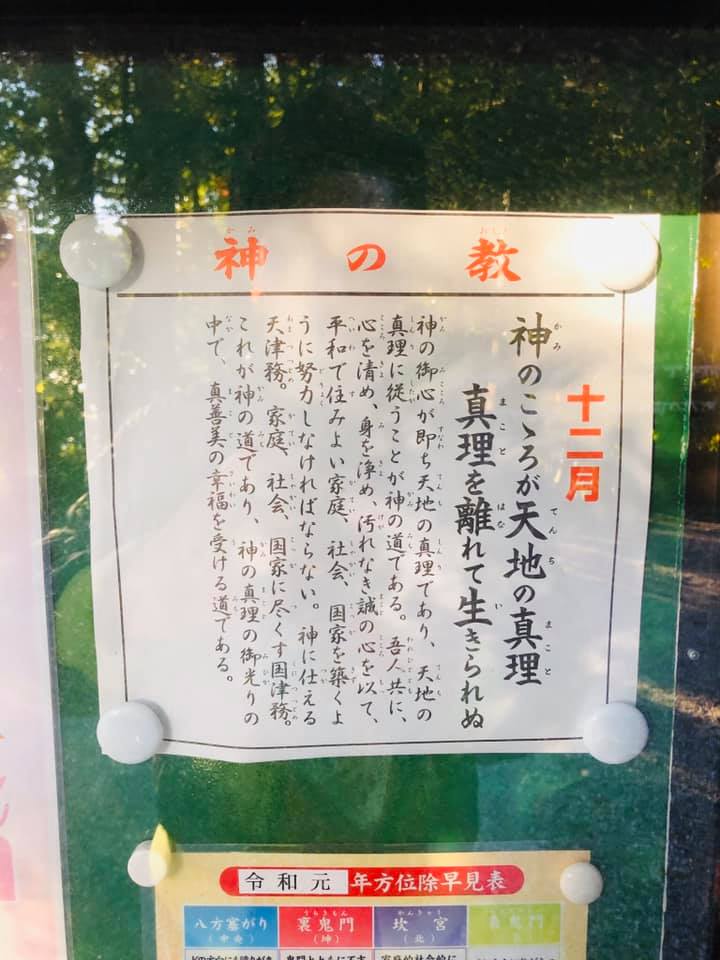 神の教
十二月
神のこゝろが天地の真理
真理を離れて生きられぬ
神の御心が即ち天地の真理であり、天地の
真理に従うことが神の道である。吾人共に、
心を清め、身を浄め、汚れなき誠の心を以て、
平和で住みよい家庭、社会、国家を築くよ
うに努力しなければならない。神に仕える
天津務。家庭、社会、国家に尽くす国津務。
これが神の道であり、神の真理の御光りの
中で、真善美の幸福を受ける道である。
令和元年方位除早見表
八方塞がり
(中央)
裏鬼門
(坤)
坎宮
(北)
鬼門